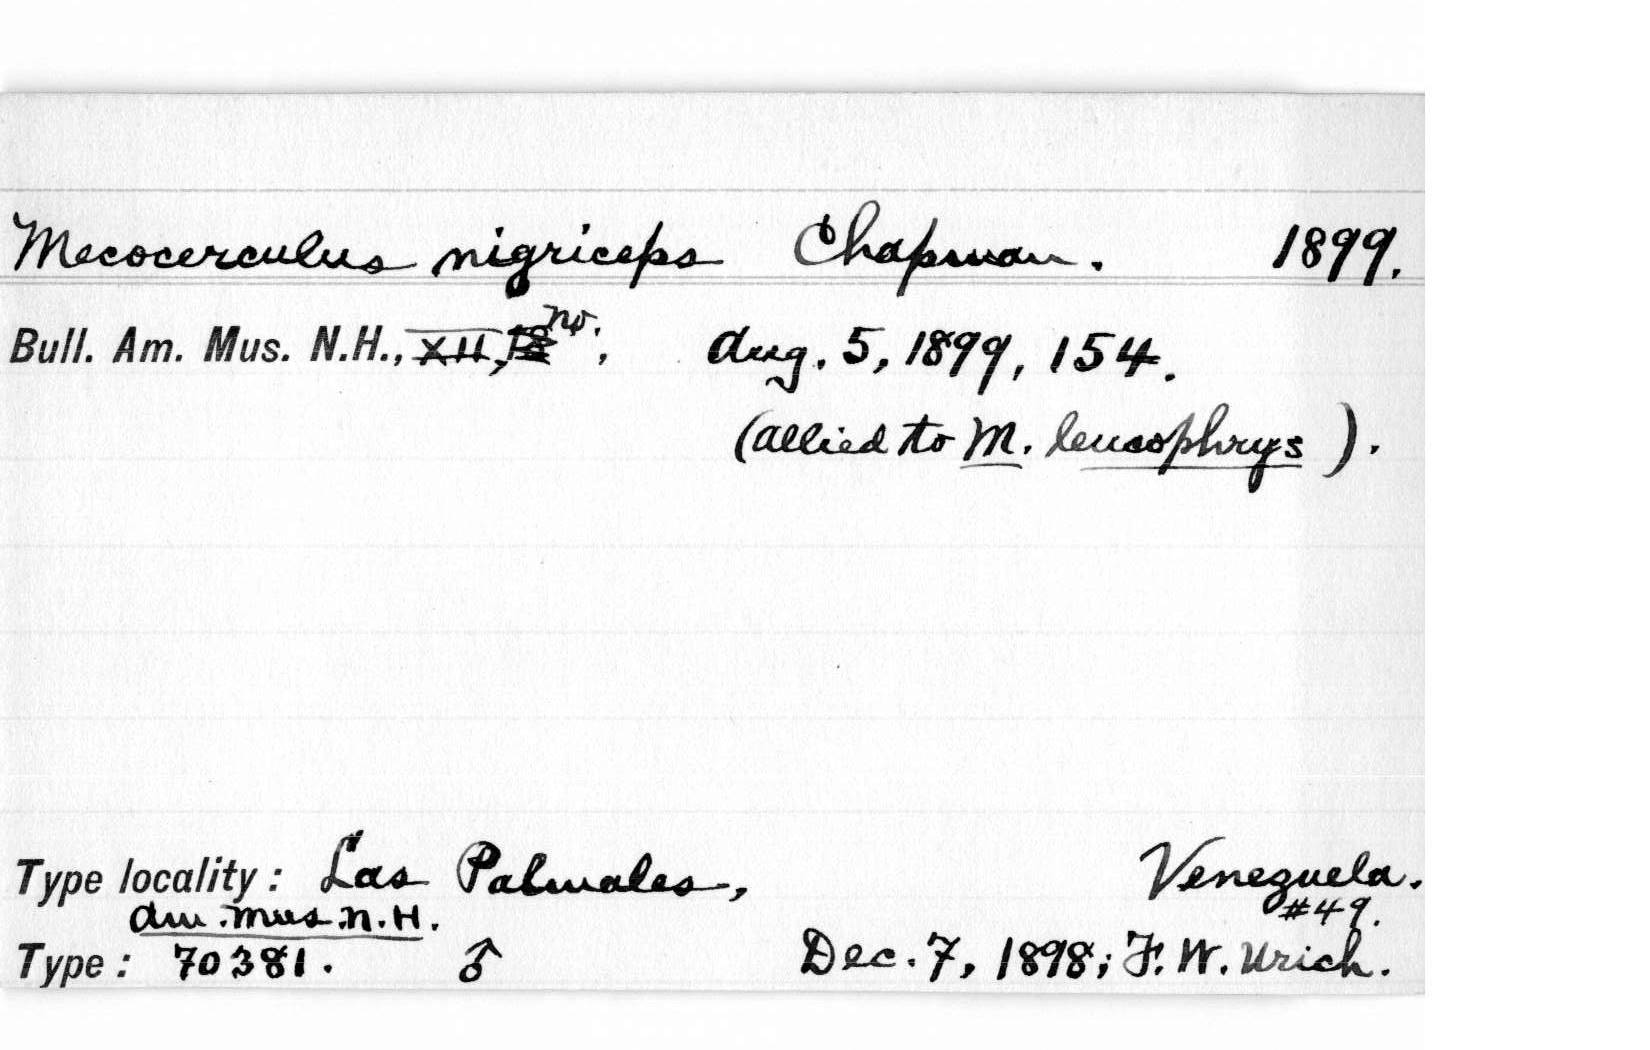 Mecocerculus nigriceps Chapman. 1899.
Bull. Am. Mus. N.H., XII, no. , Aug. 5, 1899, 154.
(allied to M. leucophrys ).
Type locality: Las Palmales, Venezuela.
Am. Mus. N. H. #49.
Type: 70381. ♂ Dec. 7, 1898; F. W. Urich.